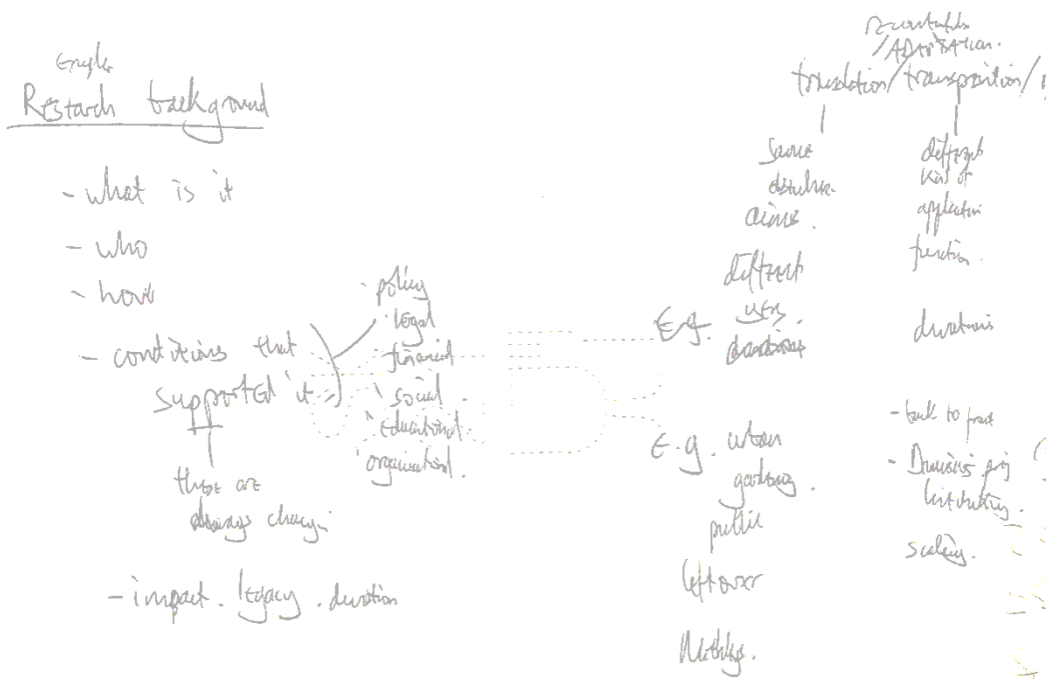 Research background
- what is it
- who
- how
- conditions that
supported it
these are
always changin
- impact. legacy. duration
policy
legal
financial
social.
educational
organisational.
/ADAPTATION.
translation/transposition/
same
aims.
different
users.
E.g.
E.g. urban
gardening.
public
leftover
different
kind of
application
function.
durations
scaling.